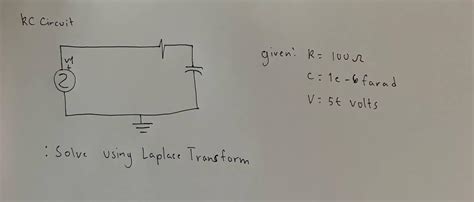 RC Circuit
V1
+
given: R = 100Ω
C = 1e-6 farad
V = 5t volts
: Solve using Laplace Transform